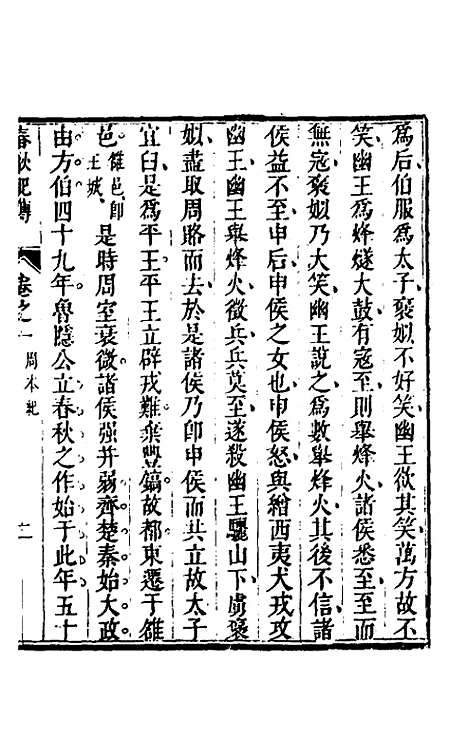 爲后伯服爲太子褒姒不好笑幽王欲其笑萬方故不
笑幽王爲烽燧大鼓有寇至則舉烽火諸侯悉至至而
無寇褒姒乃大笑幽王說之爲數舉烽火其後不信諸
侯益不至申后申侯之女也申侯怒與繒西夷犬戎攻
幽王幽王舉烽火徵兵兵莫至遂殺幽王驪山下虜褒
姒盡取周賂而去於是諸侯乃卽申侯而共立故太子
宜臼是爲平王平王立辟戎難棄豐鎬故都東遷于雒
邑雒邑卽王城是時周室衰微諸侯强并弱齊楚秦始大政
由方伯四十九年魯隱公立春秋之作始于此年五十
春秋紀傳 卷之一 周本紀 二